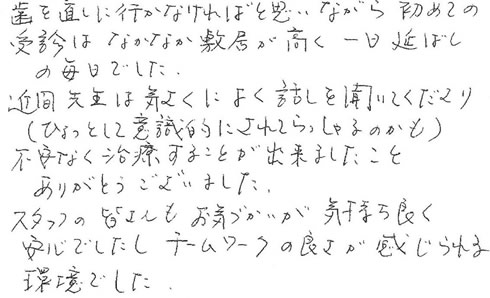 歯を直しに行かなければと思いながら 初めての
受診は なかなか敷居が高く 一日延ばし
の毎日でした.
近間先生は気さくによく話しを聞いてくださり
(ひょっとして意識的にされてらっしゃるのかも)
不安なく治療することが出来ましたこと
ありがとうございました.
スタッフの皆さんも お気づかいが 気持ち良く
安心でしたし チームワークの良さが感じられる
環境でした.